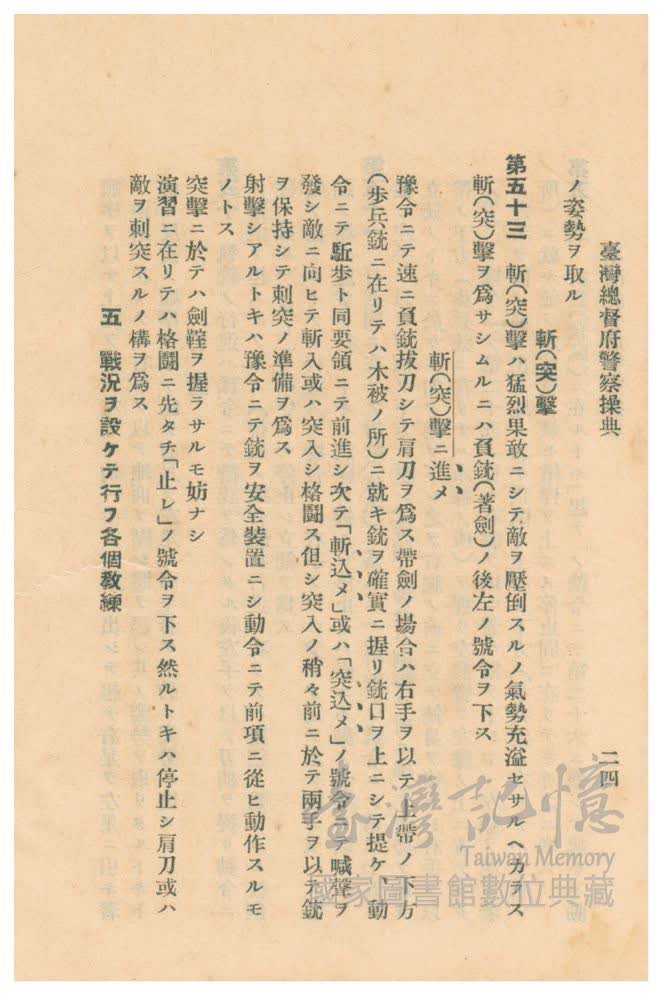 臺灣總督府警察操典
二四
ノ姿勢ヲ取ル
斬(突)擊
第五十三 斬(突)擊ハ猛烈果敢ニシテ敵ヲ壓倒スルノ氣勢充溢セサルヘカラス
斬(突)擊ヲ爲サシムルニハ負銃(著劍)ノ後左ノ號令ヲ下ス
斬(突)擊ニ進メ
豫令ニテ速ニ負銃拔刀シテ肩刀ヲ爲ス帶劍ノ場合ハ右手ヲ以テ上帶ノ下方
(步兵銃ニ在リテハ木被ノ所)ニ就キ銃ヲ確實ニ握リ銃口ヲ上ニシテ提ケ、動
令ニテ駈步ト同要領ニテ前進シ次テ「斬込メ」或ハ「突込メ」ノ號令ニテ喊聲ヲ
發シ敵ニ向ヒテ斬入或ハ突入シ格鬪ス但シ突入ノ稍々前ニ於テ兩手ヲ以テ銃
ヲ保持シテ刺突ノ準備ヲ爲ス
射擊シアルトキハ豫令ニテ銃ヲ安全裝置ニシ動令ニテ前項ニ從ヒ動作スルモ
ノトス
突擊ニ於テハ劍鞘ヲ握ラサルモ妨ナシ
演習ニ在リテハ格鬪ニ先タチ「止レ」ノ號令ヲ下ス然ルトキハ停止シ肩刀或ハ
敵ヲ刺突スルノ構ヲ爲ス
五 戰況ヲ設ケテ行フ各個敎練
臺灣記憶
Taiwan Memory
國家圖書館數位典藏